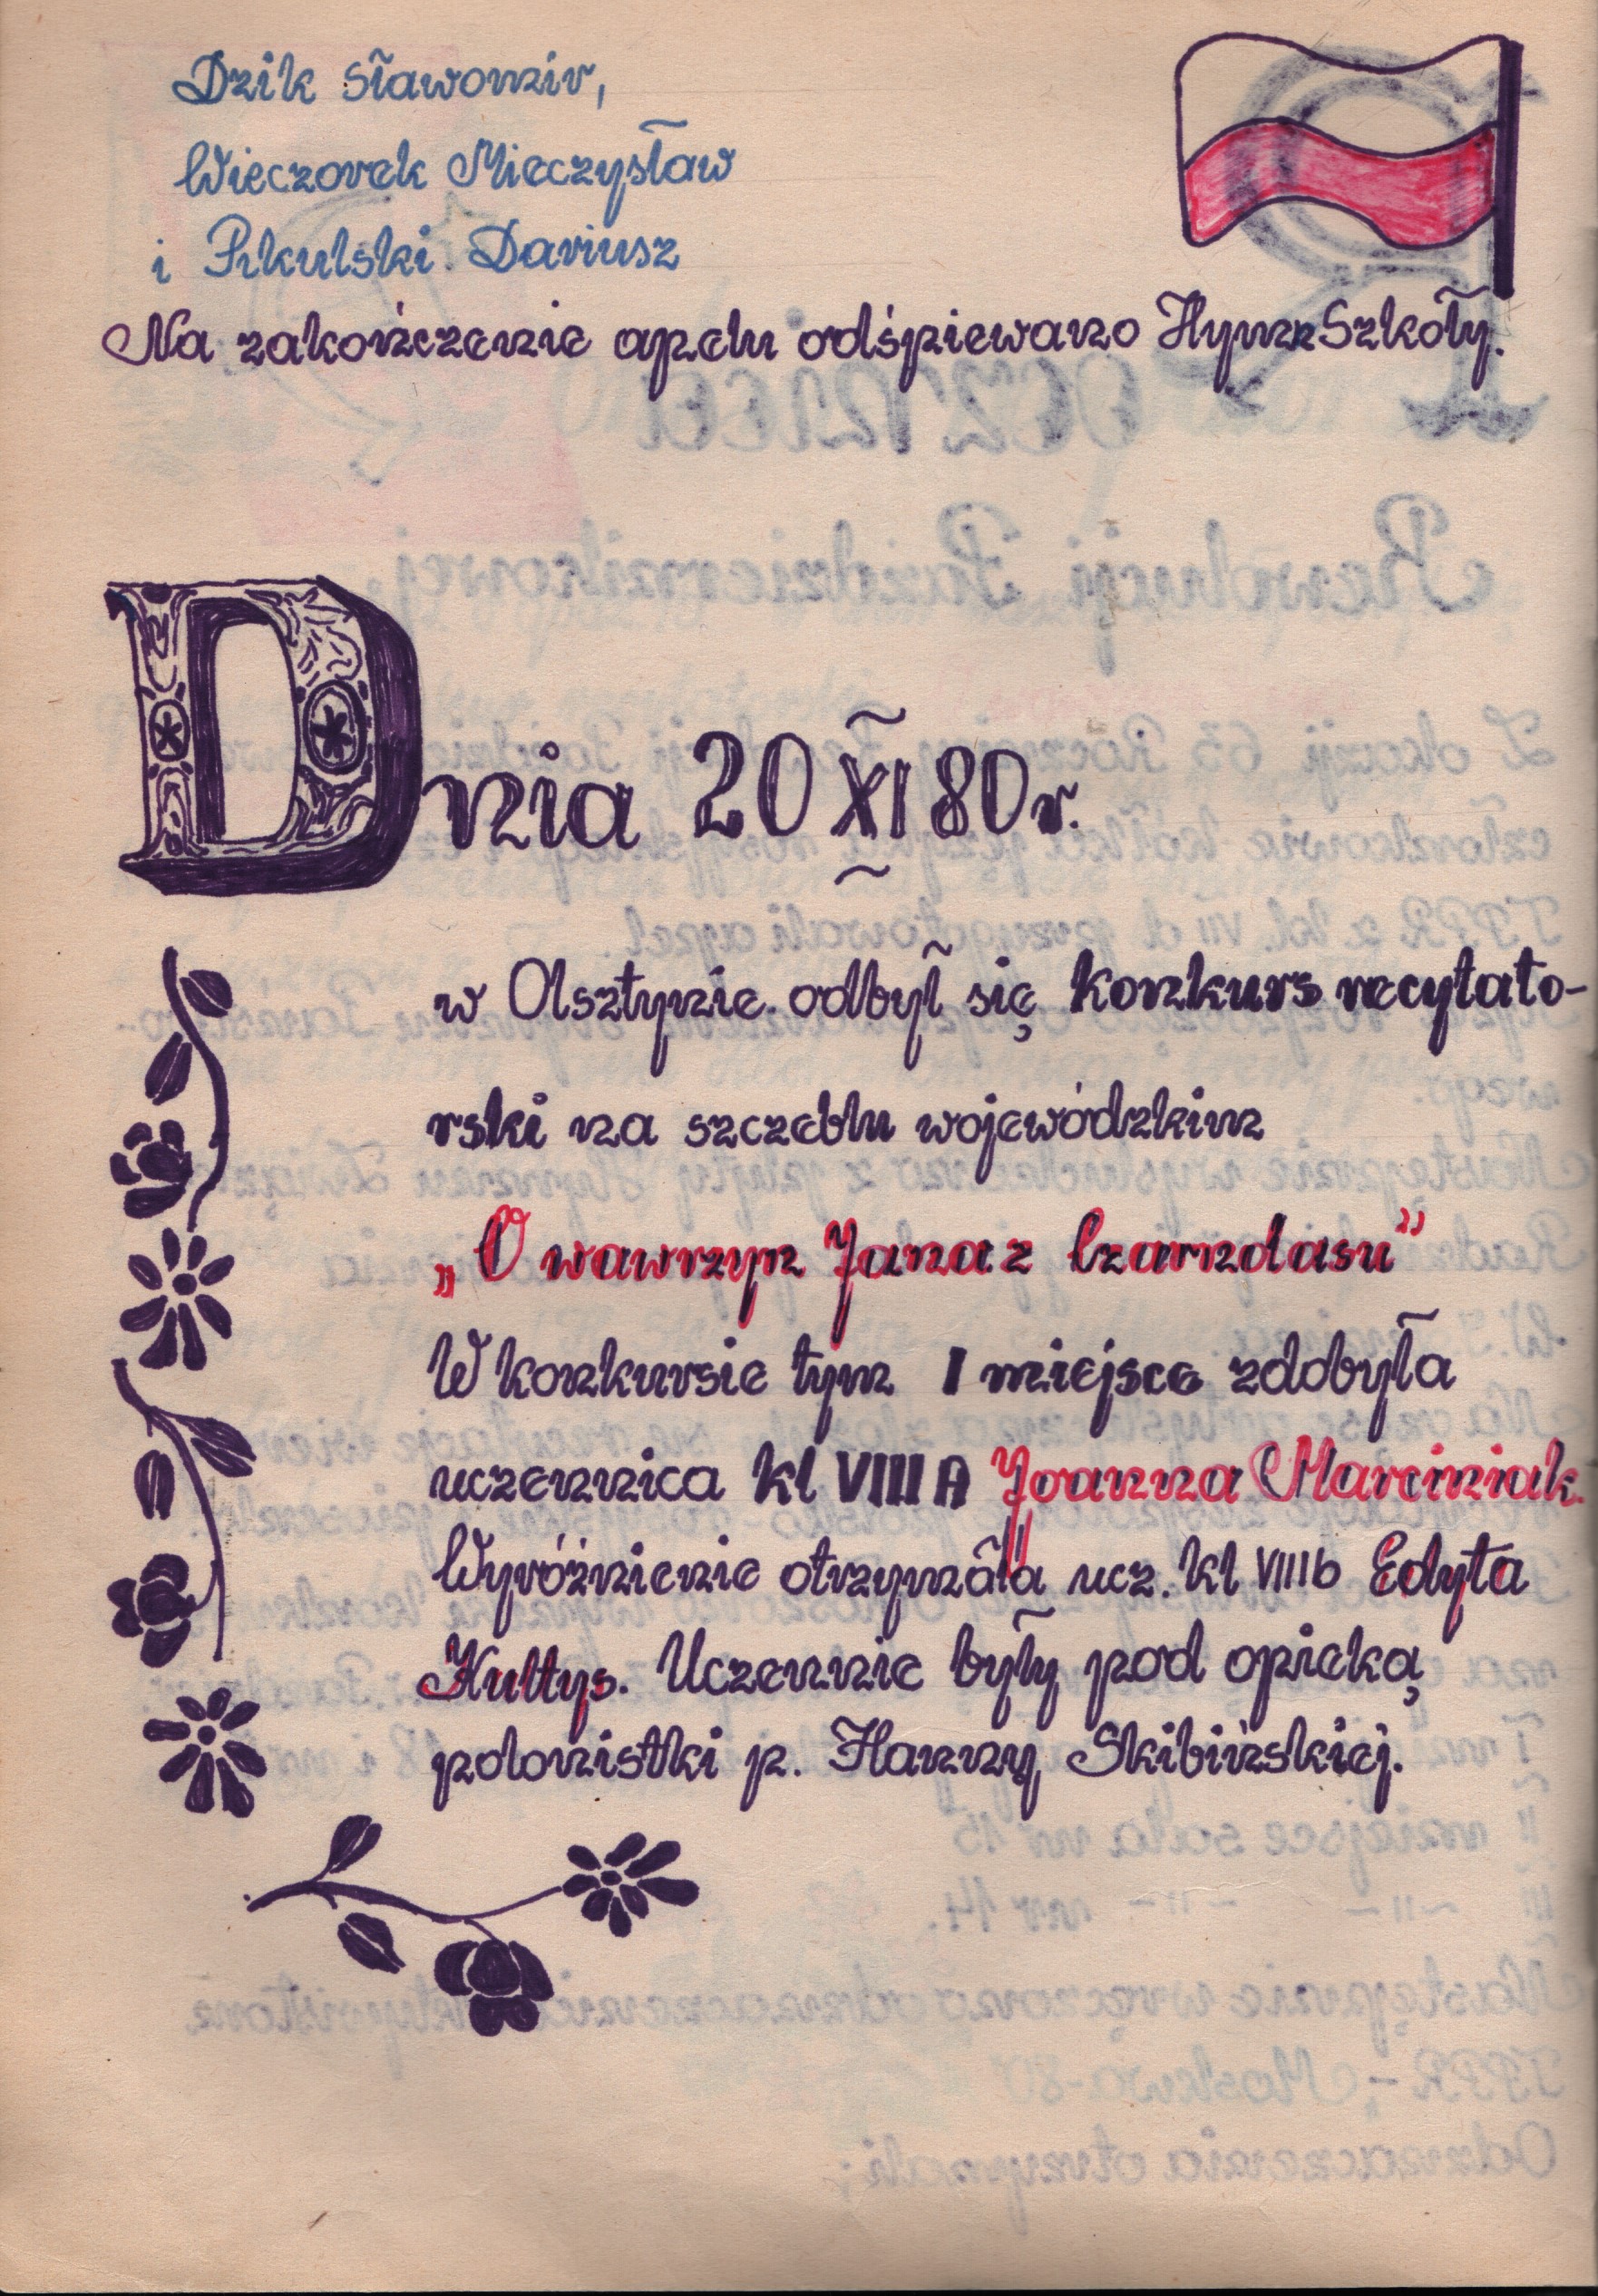 Dzik Sławomir,
Wieczorek Mieczysław
i Pikulski Dariusz
Na zakończenie apelu odśpiewano Hymn Szkoły.
Dnia 20 XI 80 r.
w Olsztynie odbył się konkurs recytato-
rski na szczeblu wojewódzkim
„O wawrzyn Jana z Czarndasu”
W konkursie tym I miejsce zdobyła
uczennica kl VIII A Joanna Marciniak.
Wyróżnienie otrzymała ucz. kl VIII b Edyta
Kultys. Uczennie były pod opieką
polonistki p. Hanny Skibińskiej.